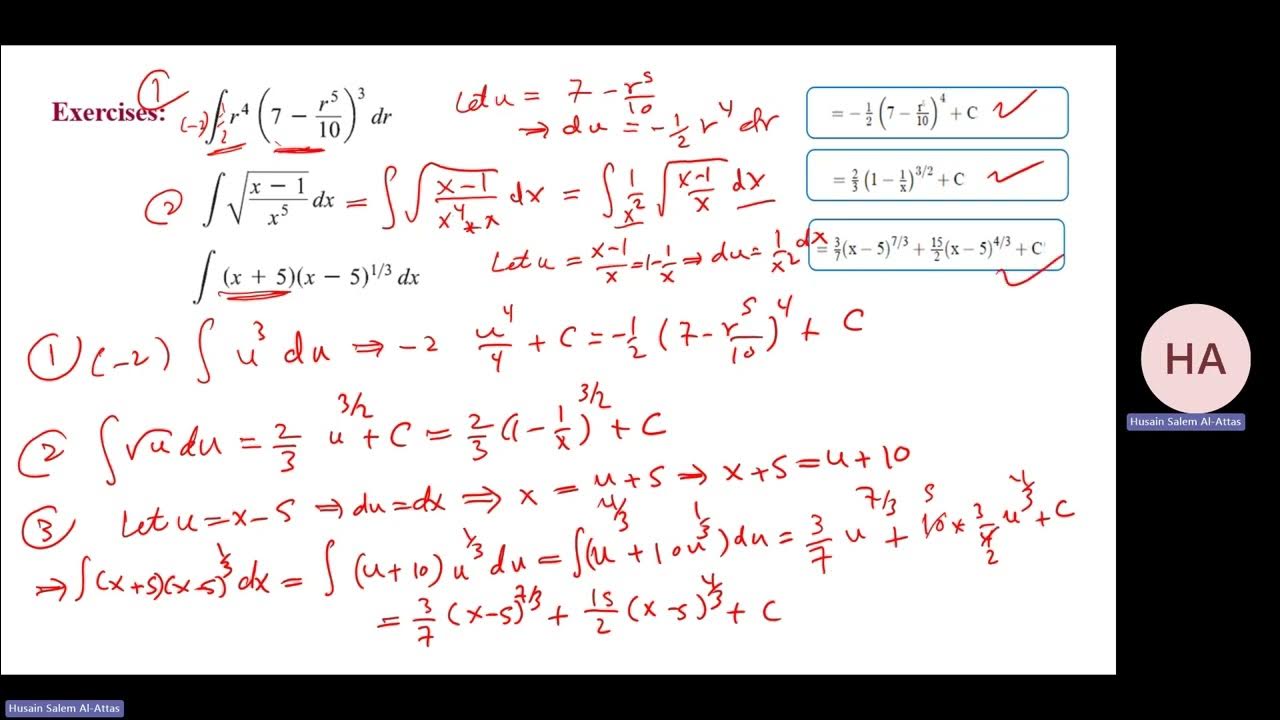 ①
Exercises: (-2) ∫ -1/2 r⁴ (7 − r⁵/10)³ dr
Let u = 7 − r⁵/10
⇒ du = −1/2 r⁴ dr
= −1/2 (7 − r/10)⁴ + C ✓
② ∫ √((x − 1)/x⁵) dx = ∫ √((x−1)/(x⁴*x)) dx = ∫ 1/x² √((x−1)/x) dx
= 2/3 (1 − 1/x)^{3/2} + C ✓
Let u = (x−1)/x = 1−1/x ⇒ du = 1/x² dx
= 3/7 (x − 5)^{7/3} + 15/2 (x − 5)^{4/3} + C ✓
∫ (x + 5)(x − 5)^{1/3} dx
① (−2) ∫ u³ du ⇒ −2 u⁴/4 + C = −1/2 (7 − r⁵/10)⁴ + C
② ∫ √u du = 2/3 u^{3/2} + C = 2/3 (1 − 1/x)^{3/2} + C
③ Let u = x − 5 ⇒ du = dx ⇒ x = u + 5 ⇒ x + 5 = u + 10
⇒ ∫ (x+5)(x−5)^{1/3} dx = ∫ (u+10) u^{1/3} du = ∫ (u^{4/3} + 10u^{1/3}) du = 3/7 u^{7/3} + 10 5 * 3/4 2 u^{4/3} + C
= 3/7 (x−5)^{7/3} + 15/2 (x−5)^{4/3} + C
HA
Husain Salem Al-Attas
Husain Salem Al-Attas